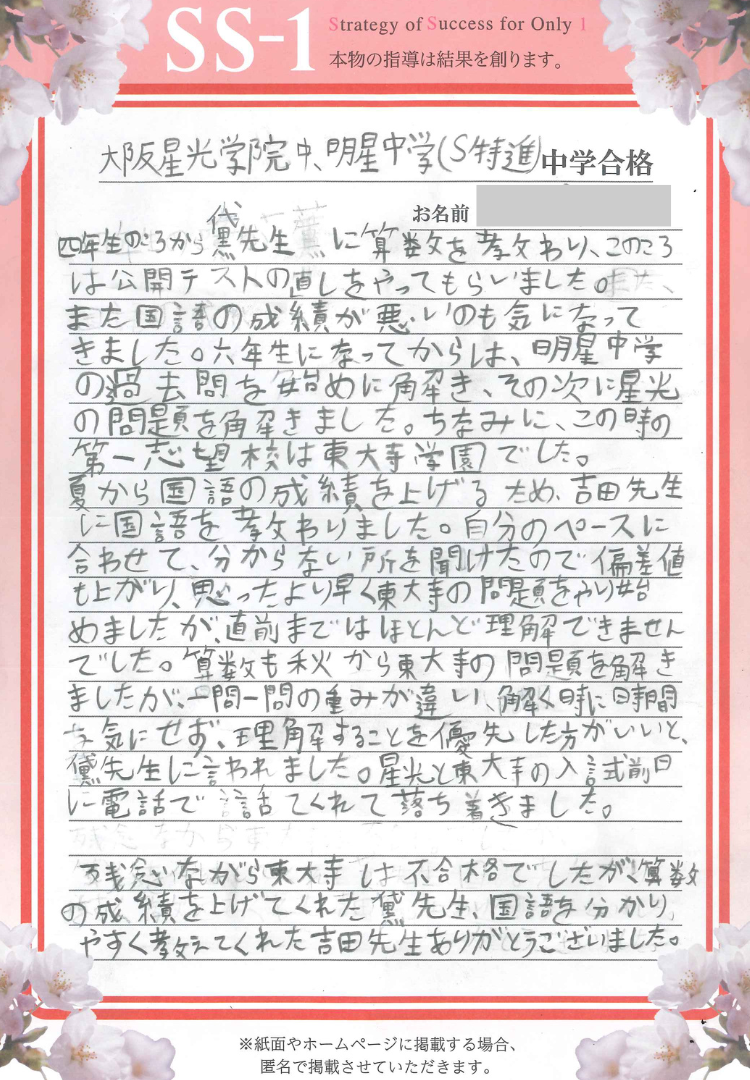 SS-1
Strategy of Success for Only 1
本物の指導は結果を創ります。
大阪星光学院中、明星中学(S特進)中学合格
お名前
四年生のころから黛先生に算数を教わり、このころ
は公開テストの直しをやってもらいました。
また国語の成績が悪いのも気になって
きました。六年生になってからは、明星中学
の過去問を始めに解き、その次に星光
の問題を解きました。ちなみに、この時の
第一志望校は東大寺学園でした。
夏から国語の成績を上げるため、吉田先生
に国語を教わりました。自分のペースに
合わせて、分からない所を聞けたので偏差値
も上がり、思ったより早く東大寺の問題をやり始
めましたが、直前まではほとんど理解できません
でした。算数も秋から東大寺の問題を解き
ましたが、一問一問の重みが違い、解く時に時間
を気にせず、理解することを優先した方がいいと、
黛先生に言われました。星光と東大寺の入試前日
に電話で話てくれて落ち着きました。
残念ながら東大寺は不合格でしたが、算数
の成績を上げてくれた黛先生、国語を分かり
やすく教えてくれた吉田先生ありがとうございました。
※紙面やホームページに掲載する場合、
匿名で掲載させていただきます。